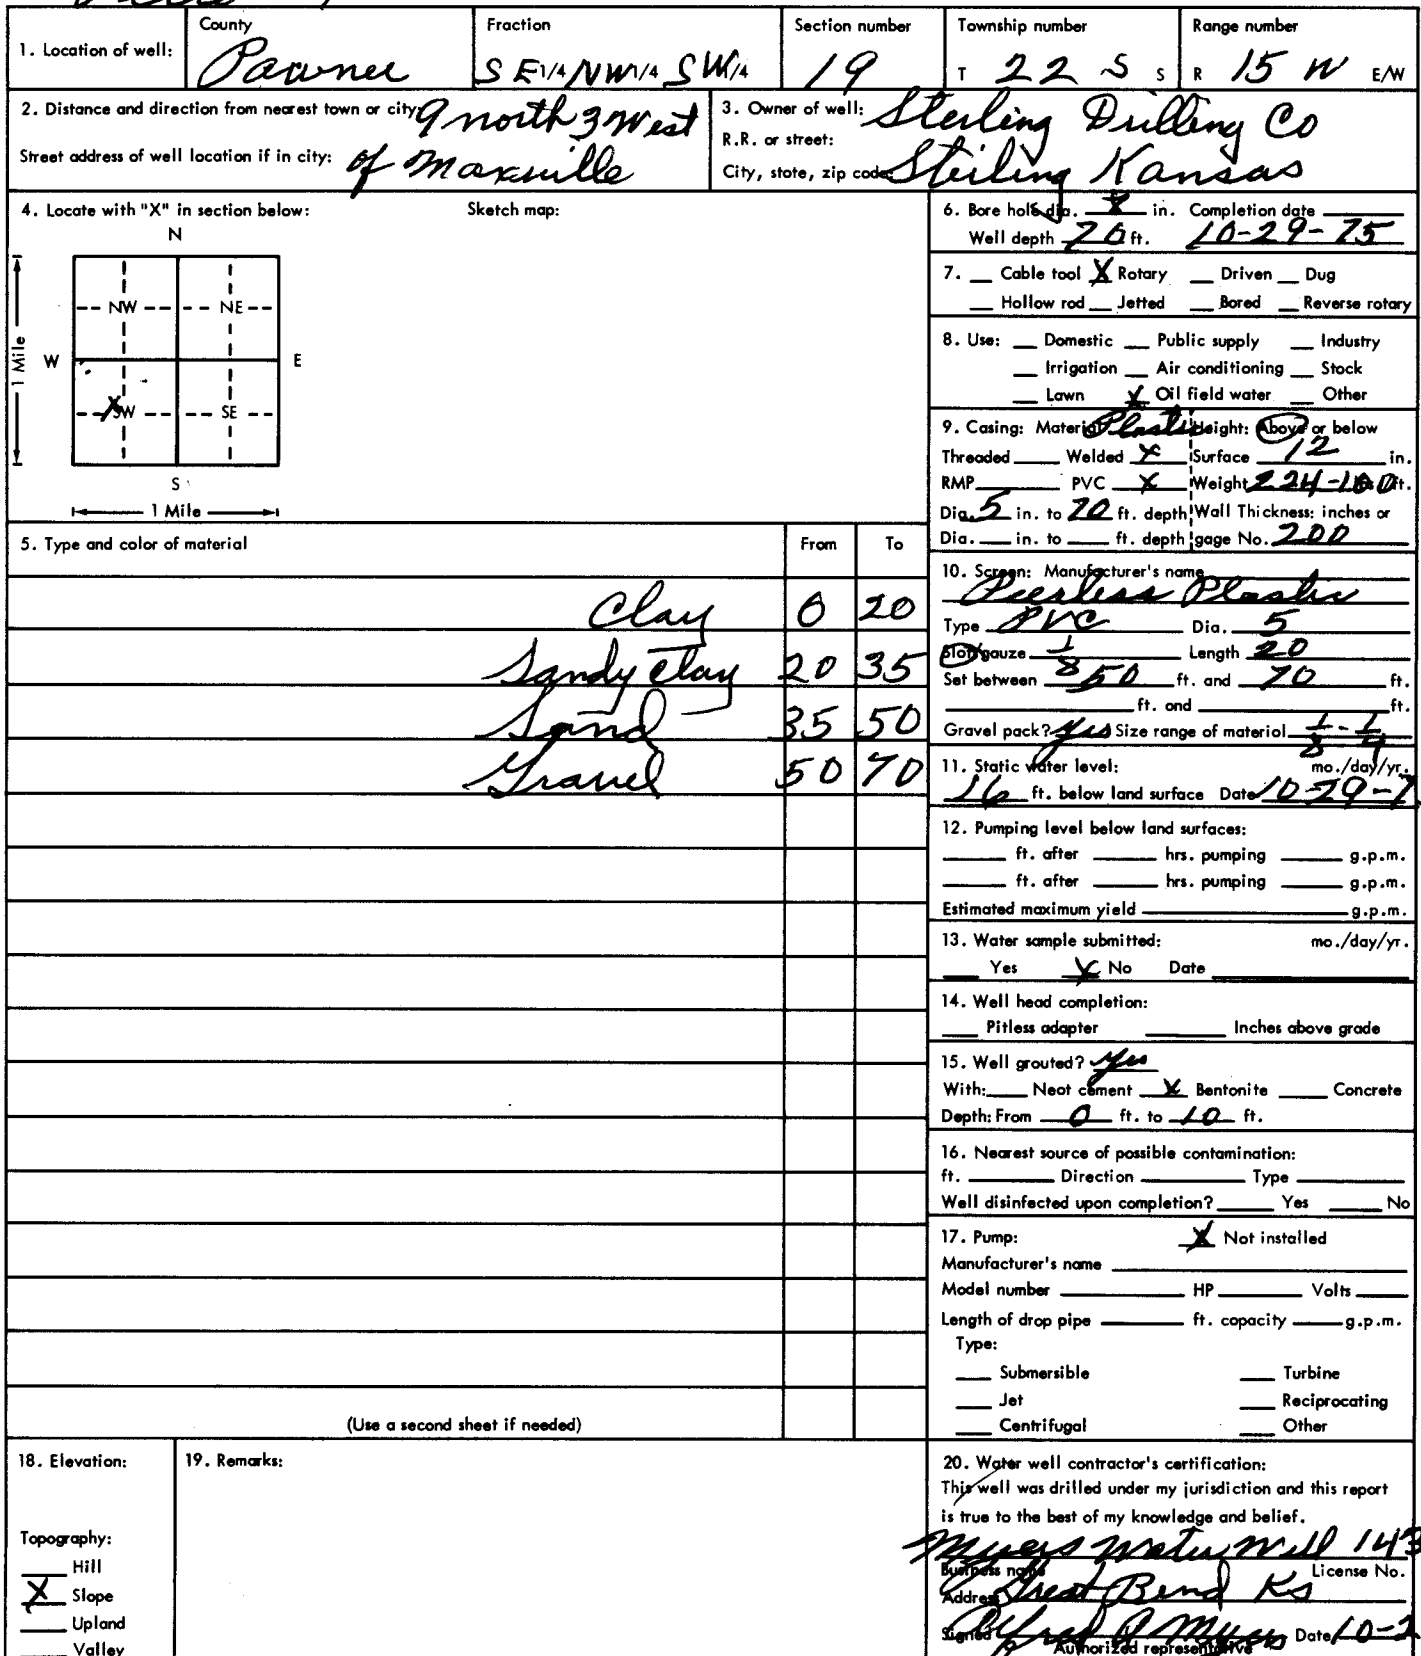 County Fraction Section number Township number Range number
1. Location of well: Pawnee SE 1/4 NW 1/4 SW 1/4 19 T 22 S S R 15 W E/W
2. Distance and direction from nearest town or city: 9 north 3 West
Street address of well location if in city: of Macksville
3. Owner of well: Sterling Drilling Co
R.R. or street:
City, state, zip code: Sterling Kansas
4. Locate with "X" in section below: Sketch map:
N
NW NE
W E
1 Mile
X SW SE
S
1 Mile
5. Type and color of material From To
Clay 0 20
Sandy Clay 20 35
Sand 35 50
Gravel 50 70
(Use a second sheet if needed)
6. Bore hole dia. in. Completion date
Well depth 70 ft. 10-29-75
7. Cable tool X Rotary Driven Dug
Hollow rod Jetted Bored Reverse rotary
8. Use: Domestic Public supply Industry
Irrigation Air conditioning Stock
Lawn X Oil field water Other
9. Casing: Material Plastic Height: Above or below
Threaded Welded X Surface 12 in.
RMP PVC X Weight 224-100 ft.
Dia. 5 in. to 70 ft. depth Wall Thickness: inches or
Dia. in. to ft. depth gage No. 200
10. Screen: Manufacturer's name
Peerless Plastic
Type PVC Dia. 5
Slot/gauze 1/8 Length 20
Set between 50 ft. and 70 ft.
ft. and ft.
Gravel pack? yes Size range of material 1/8 - 1/4
11. Static water level: mo./day/yr.
16 ft. below land surface Date 10-29-7
12. Pumping level below land surfaces:
ft. after hrs. pumping g.p.m.
ft. after hrs. pumping g.p.m.
Estimated maximum yield g.p.m.
13. Water sample submitted: mo./day/yr.
Yes X No Date
14. Well head completion:
Pitless adapter Inches above grade
15. Well grouted? yes
With: Neat cement X Bentonite Concrete
Depth: From 0 ft. to 10 ft.
16. Nearest source of possible contamination:
ft. Direction Type
Well disinfected upon completion? Yes No
17. Pump: X Not installed
Manufacturer's name
Model number HP Volts
Length of drop pipe ft. capacity g.p.m.
Type:
Submersible Turbine
Jet Reciprocating
Centrifugal Other
18. Elevation:
Topography:
Hill
X Slope
Upland
Valley
19. Remarks:
20. Water well contractor's certification:
This well was drilled under my jurisdiction and this report
is true to the best of my knowledge and belief.
Myers Water Well 143
Business name License No.
Address Great Bend Ks
Signed Alfred A Myers Date 10-2
Authorized representative